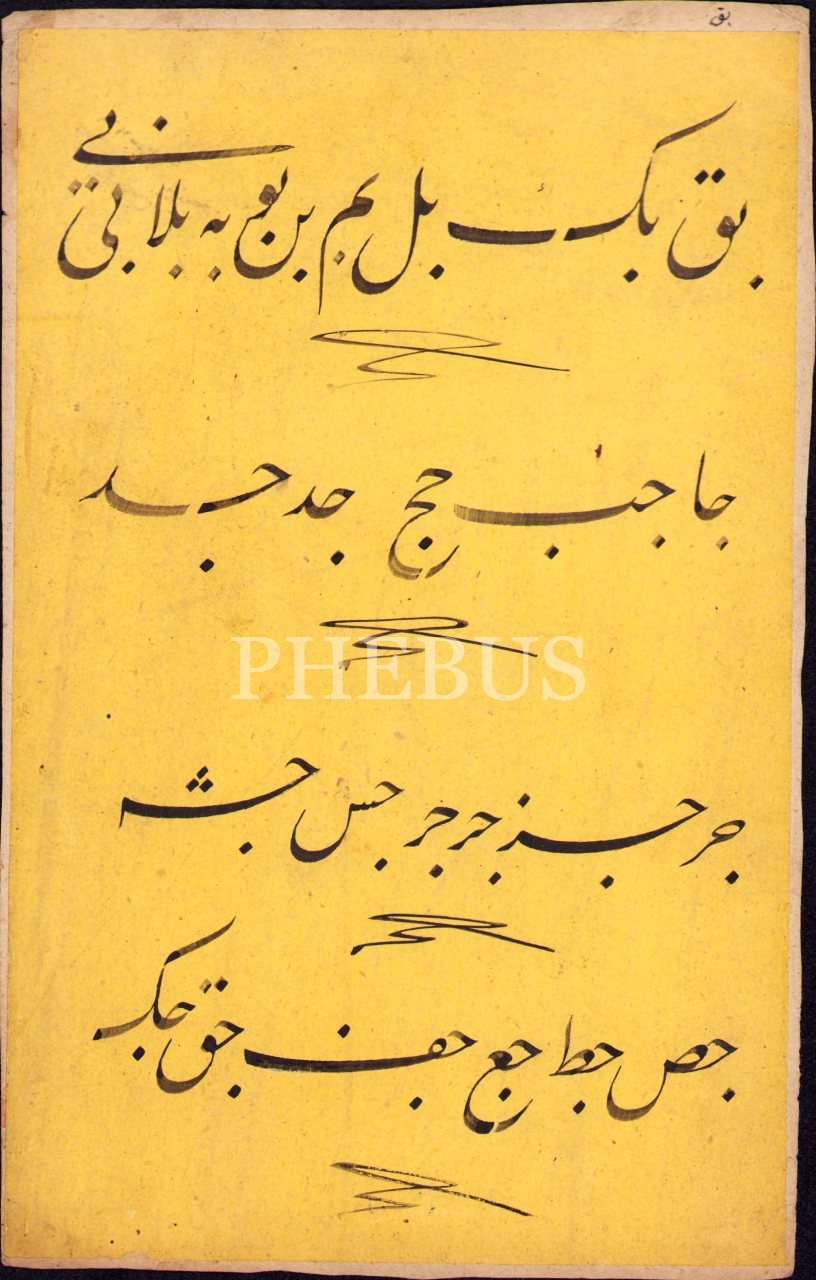 بق
بق بک بل بم بن بو به بلا بی
جا جب جج جد جد
PHEBUS
جر جر جر جس جش
جص جط جع جف جق جک